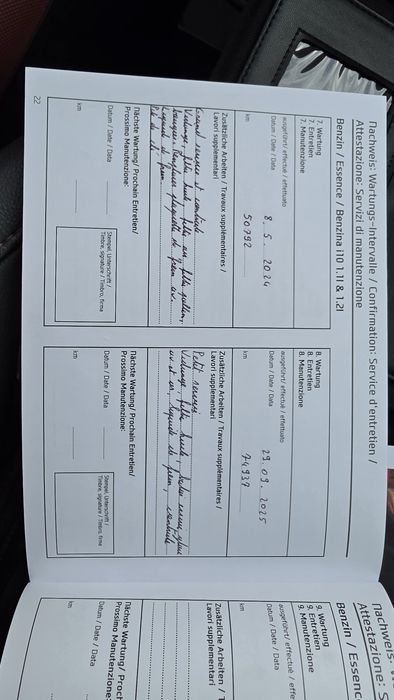 Nachweis: Wartungs-Intervalle / Confirmation: Service d'entretien /
Attestazione: Servizi di manutenzione
Benzin / Essence / Benzina i10 1.1l & 1.2l
7. Wartung
7. Entretien
7. Manutenzione
ausgeführt/ effectué / effettuato
Datum / Date / Data
8. 5. 2024
km
50792
Zusätzliche Arbeiten / Travaux supplémentaires /
Lavori supplementari
Grand service et contrôle
Vidange, filtre huile, filtre air, filtre pollen,
bougies. Remplacer plaquette de frein av.
Liquide de frein.
Pile de clé.
Nächste Wartung/ Prochain Entretien/
Prossimo Manutenzione:
Datum / Date / Data
km
Stempel, Unterschrift /
Timbre, signature / Timbro, firma
22
8. Wartung
8. Entretien
8. Manutenzione
ausgeführt/ effectué / effettuato
Datum / Date / Data
29. 09. 2025
km
74937
Zusätzliche Arbeiten / Travaux supplémentaires /
Lavori supplementari
Petit service
Vidange, filtre huile,
av et arr, liquide de frein, contrôle
Nächste Wartung/ Prochain Entretien/
Prossimo Manutenzione:
Datum / Date / Data
km
Stempel, Unterschrift /
Timbre, signature / Timbro, firma
Nachweis:
Attestazione: S
Benzin / Essenc
9. Wartung
9. Entretien
9. Manutenzione
ausgeführt/ effectué / effe
Datum / Date / Data
km
Zusätzliche Arbeiten / T
Lavori supplementari
Nächste Wartung/ Proch
Prossimo Manutenzione:
Datum / Date / Data
km